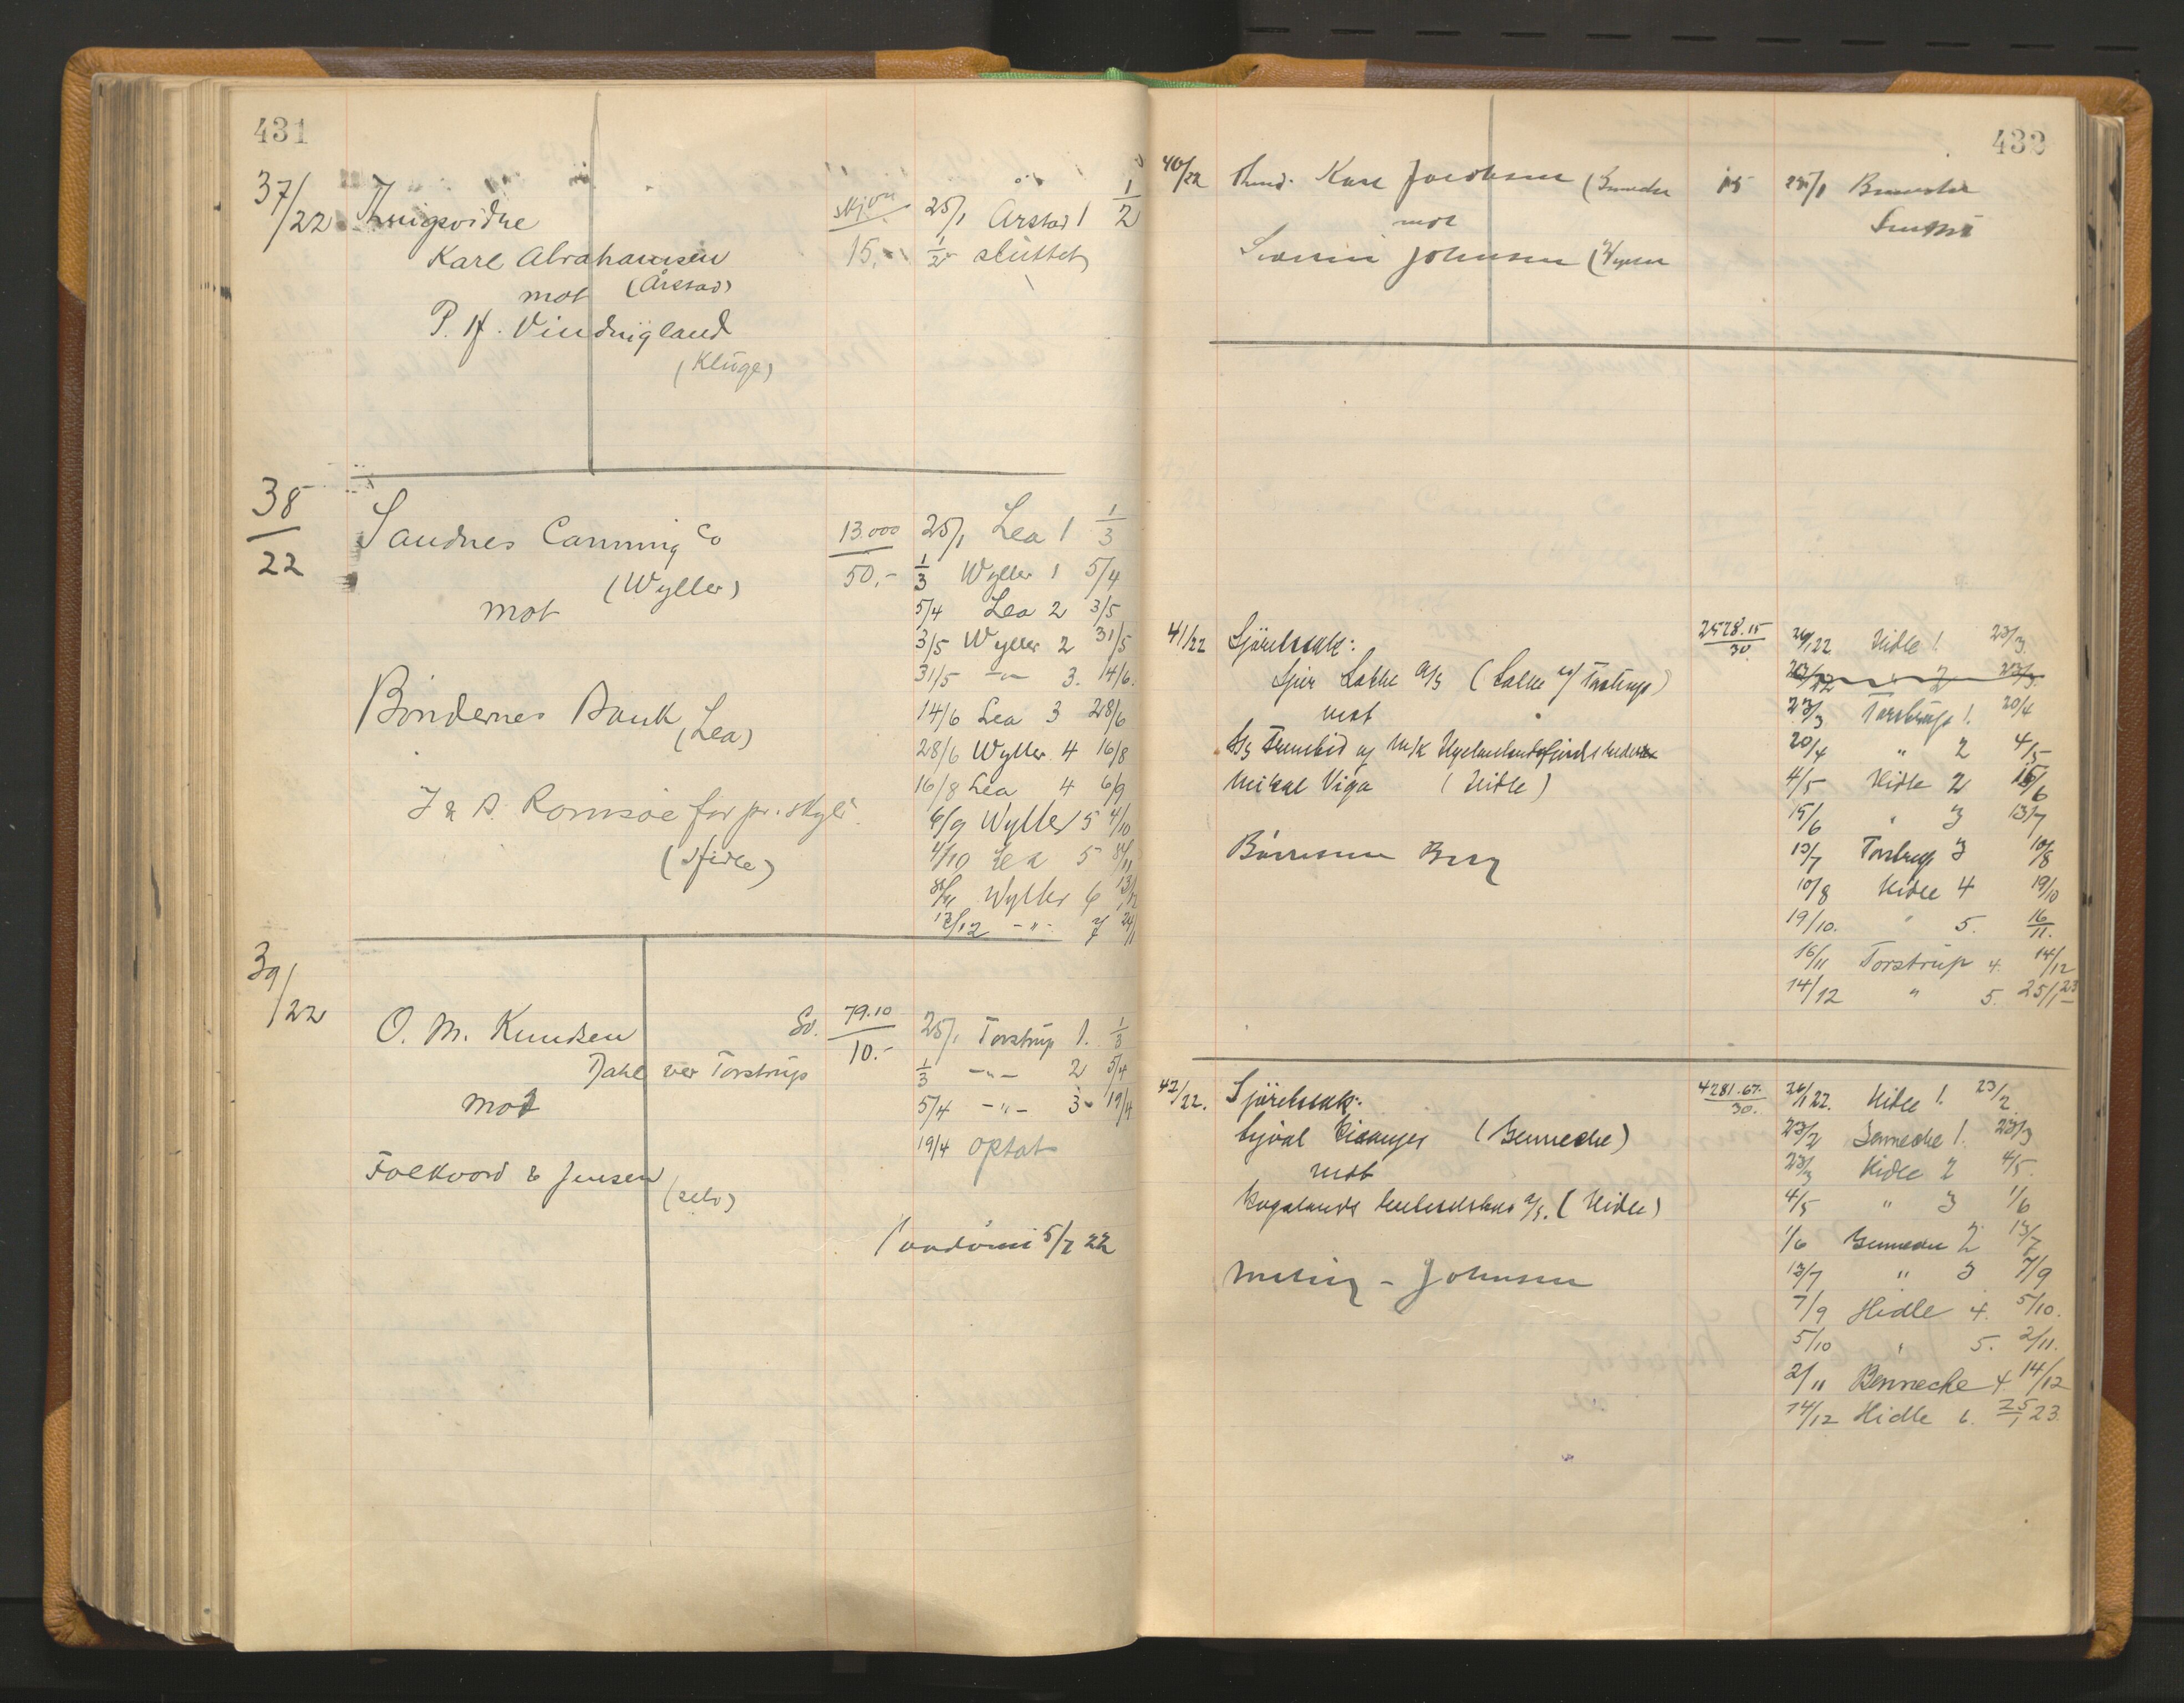 431
37/22 Tingsvidne skjøn 25/1 Årstad 1 1/2
Karl Abrahamsen 15.- 1/2 sluttet
mot (Årstad)
P. H. Vindvigland
(Kluge)
38/22 Sandnes Canning Co 13.000 25/1 Lea 1 1/3
(Wyller) 50.- 1/3 Wyller 1 5/4
mot 5/4 Lea 2 3/5
3/5 Wyller 2 31/5
31/5 -"- 3. 14/6.
Bøndernes Bank (Lea) 14/6 Lea 3 28/6
28/6 Wyller 4 16/8
16/8 Lea 4 6/9
J & A. Romsøe for pr. skyld. 6/9 Wyller 5 4/10
(Hidle) 4/10 Lea 5
Wyller 6 13/12
13/12 -"- 7
39/22
O. M. Knudsen So. 79.10 25/1 Torstrup 1. 1/3
Dahl ver Torstrup 10.- 1/3 -"- 2 5/4
mot 5/4 -"- 3 19/4
19/4 optat
Folkvord & Jensen
(selv)
5/7 22
432
40/22 Karl Jacobsen 15 25/1
mot
Johnsen
41/22 Sjöretssak: 2578.15 26/1 22 Hidle 1. 23/3.
30 23/3
Lakke A/S (Lalke v/ Torstrup) 23/3 Torstrup 1. 20/4
mot 20/4 " 2 4/5
og M/K 4/5 Hidle 2 15/6
Mikal Viga (Hidle) 15/6 " 3 13/7
Berg 13/7 Torstrup 3 10/8
10/8 Hidle 4 19/10
19/10. " 5. 16/11.
16/11 Torstrup 4. 14/12
14/12 " 5. 25/1 23
42/22. Sjöretssak: 4281.67. 26/1 22. Hidle 1. 23/2.
30.
(Bennecke) 23/2 Bennecke 1. 23/3
mot 23/3 Hidle 2 4/5.
Rogalands A/S. (Hidle) 4/5 " 3 1/6
1/6 Bennecke 2 13/7
Johnsen 13/7 " 3 7/9
7/9 Hidle 4. 5/10.
5/10 " 5. 2/11.
2/11 Bennecke 4. 14/12
14/12 Hidle 6. 25/1 23.